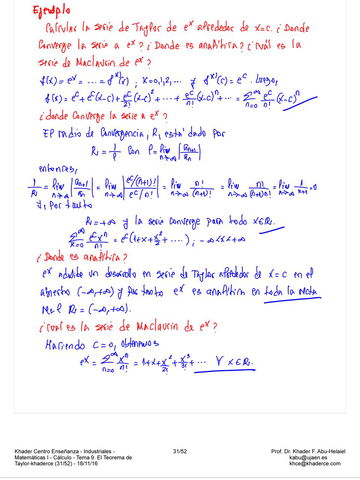 Ejemplo
Calcular la serie de Taylor de e^x alrededor de x=c. ¿Donde
Converge la serie a e^x? ¿Donde es analítica? ¿Cuál es la
serie de Maclaurin de e^x?
f(x)=e^x=...=f^(n)(x); n=0,1,2,... y f^(n)(c)=e^c. Luego,
f(x)=e^c+e^c(x-c)+e^c/2!(x-c)^2+...+e^c/n!(x-c)^n+...=∑_{n=0}^{∞} e^c/n!(x-c)^n
¿donde converge la serie a e^x?
El radio de Convergencia, R, está dado por
R=1/ρ con ρ=lim_{n→∞}|a_{n+1}/a_n|
entonces,
1/R=lim_{n→∞}|a_{n+1}/a_n|=lim_{n→∞}|e^c/(n+1)!/e^c/n!|=lim_{n→∞} n!/(n+1)!=lim_{n→∞} n!/(n+1)n!=lim_{n→∞} 1/n+1=0
y, por tanto
R=+∞ y la serie converge para todo x∈R.
∑_{n=0}^{∞} e^c x^n/n!=e^c(1+x+x^2/2+...); -∞<x<+∞
¿Donde es analítica?
e^x admite un desarrollo en serie de Taylor alrededor de x=c en el
abierto (-∞,+∞) y por tanto e^x es analítica en toda la recta
real R=(-∞,+∞).
¿Cuál es la serie de Maclaurin de e^x?
Haciendo c=0, obtenemos
e^x=∑_{n=0}^{∞} x^n/n!=1+x+x^2/2!+x^3/3!+... ∀ x∈R.
Khader Centro Enseñanza - Industriales -
Matemáticas I - Cálculo - Tema 9. El Teorema de
Taylor-khaderce (31/52) - 18/11/16
31/52
Prof. Dr. Khader F. Abu-Helaiel
kabu@ujaen.es
khce@khaderce.com